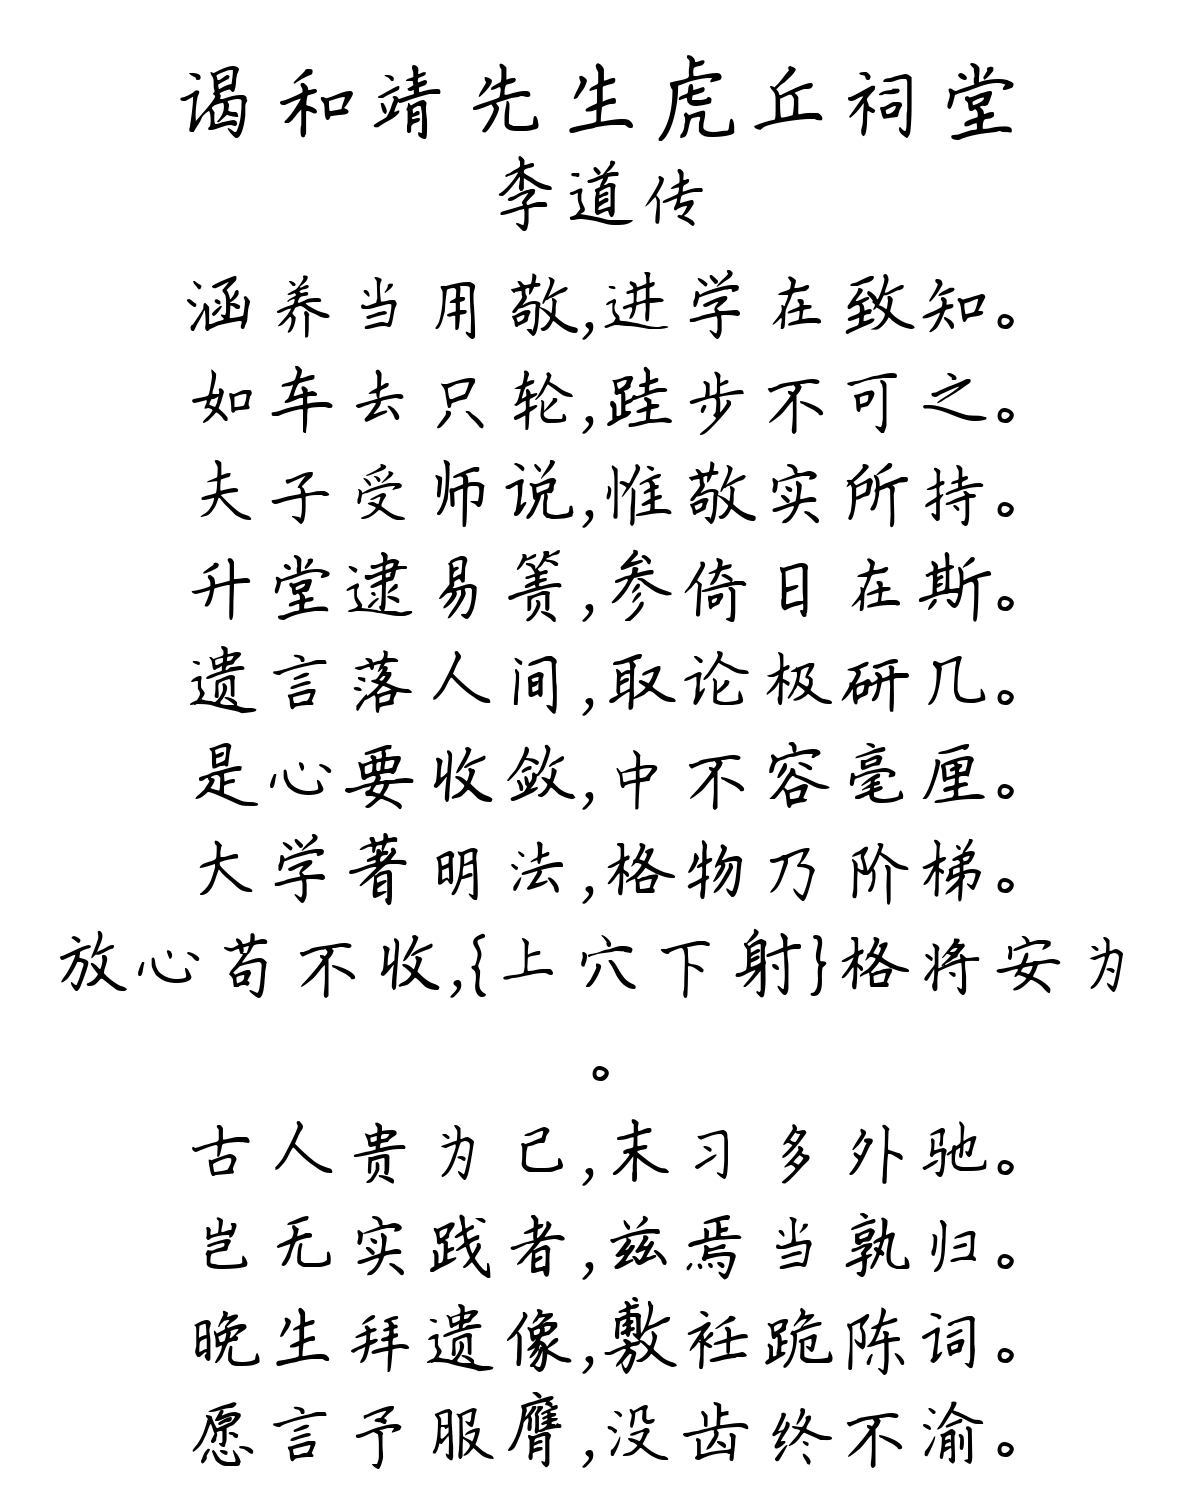 谒和靖先生虎丘祠堂
李道传
涵养当用敬,进学在致知。
如车去只轮,跬步不可之。
夫子受师说,惟敬实所持。
升堂逮易箦,参倚日在斯。
遗言落人间,取论极研几。
是心要收敛,中不容毫厘。
大学著明法,格物乃阶梯。
放心苟不收,{上穴下射}格将安为
。
古人贵为己,末习多外驰。
岂无实践者,兹焉当孰归。
晚生拜遗像,敷衽跪陈词。
愿言予服膺,没齿终不渝。